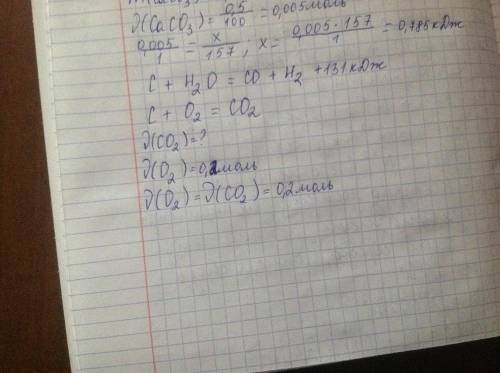 ν(CaCO₃) = 0,5/100 = 0,005 моль
0,005/1 = x/157, x = 0,005 · 157/1 = 0,785 кДж
C + H₂O = CO + H₂ + 131 кДж
C + O₂ = CO₂
ν(CO₂) = ?
ν(O₂) = 0,2 моль
ν(O₂) = ν(CO₂) = 0,2 моль